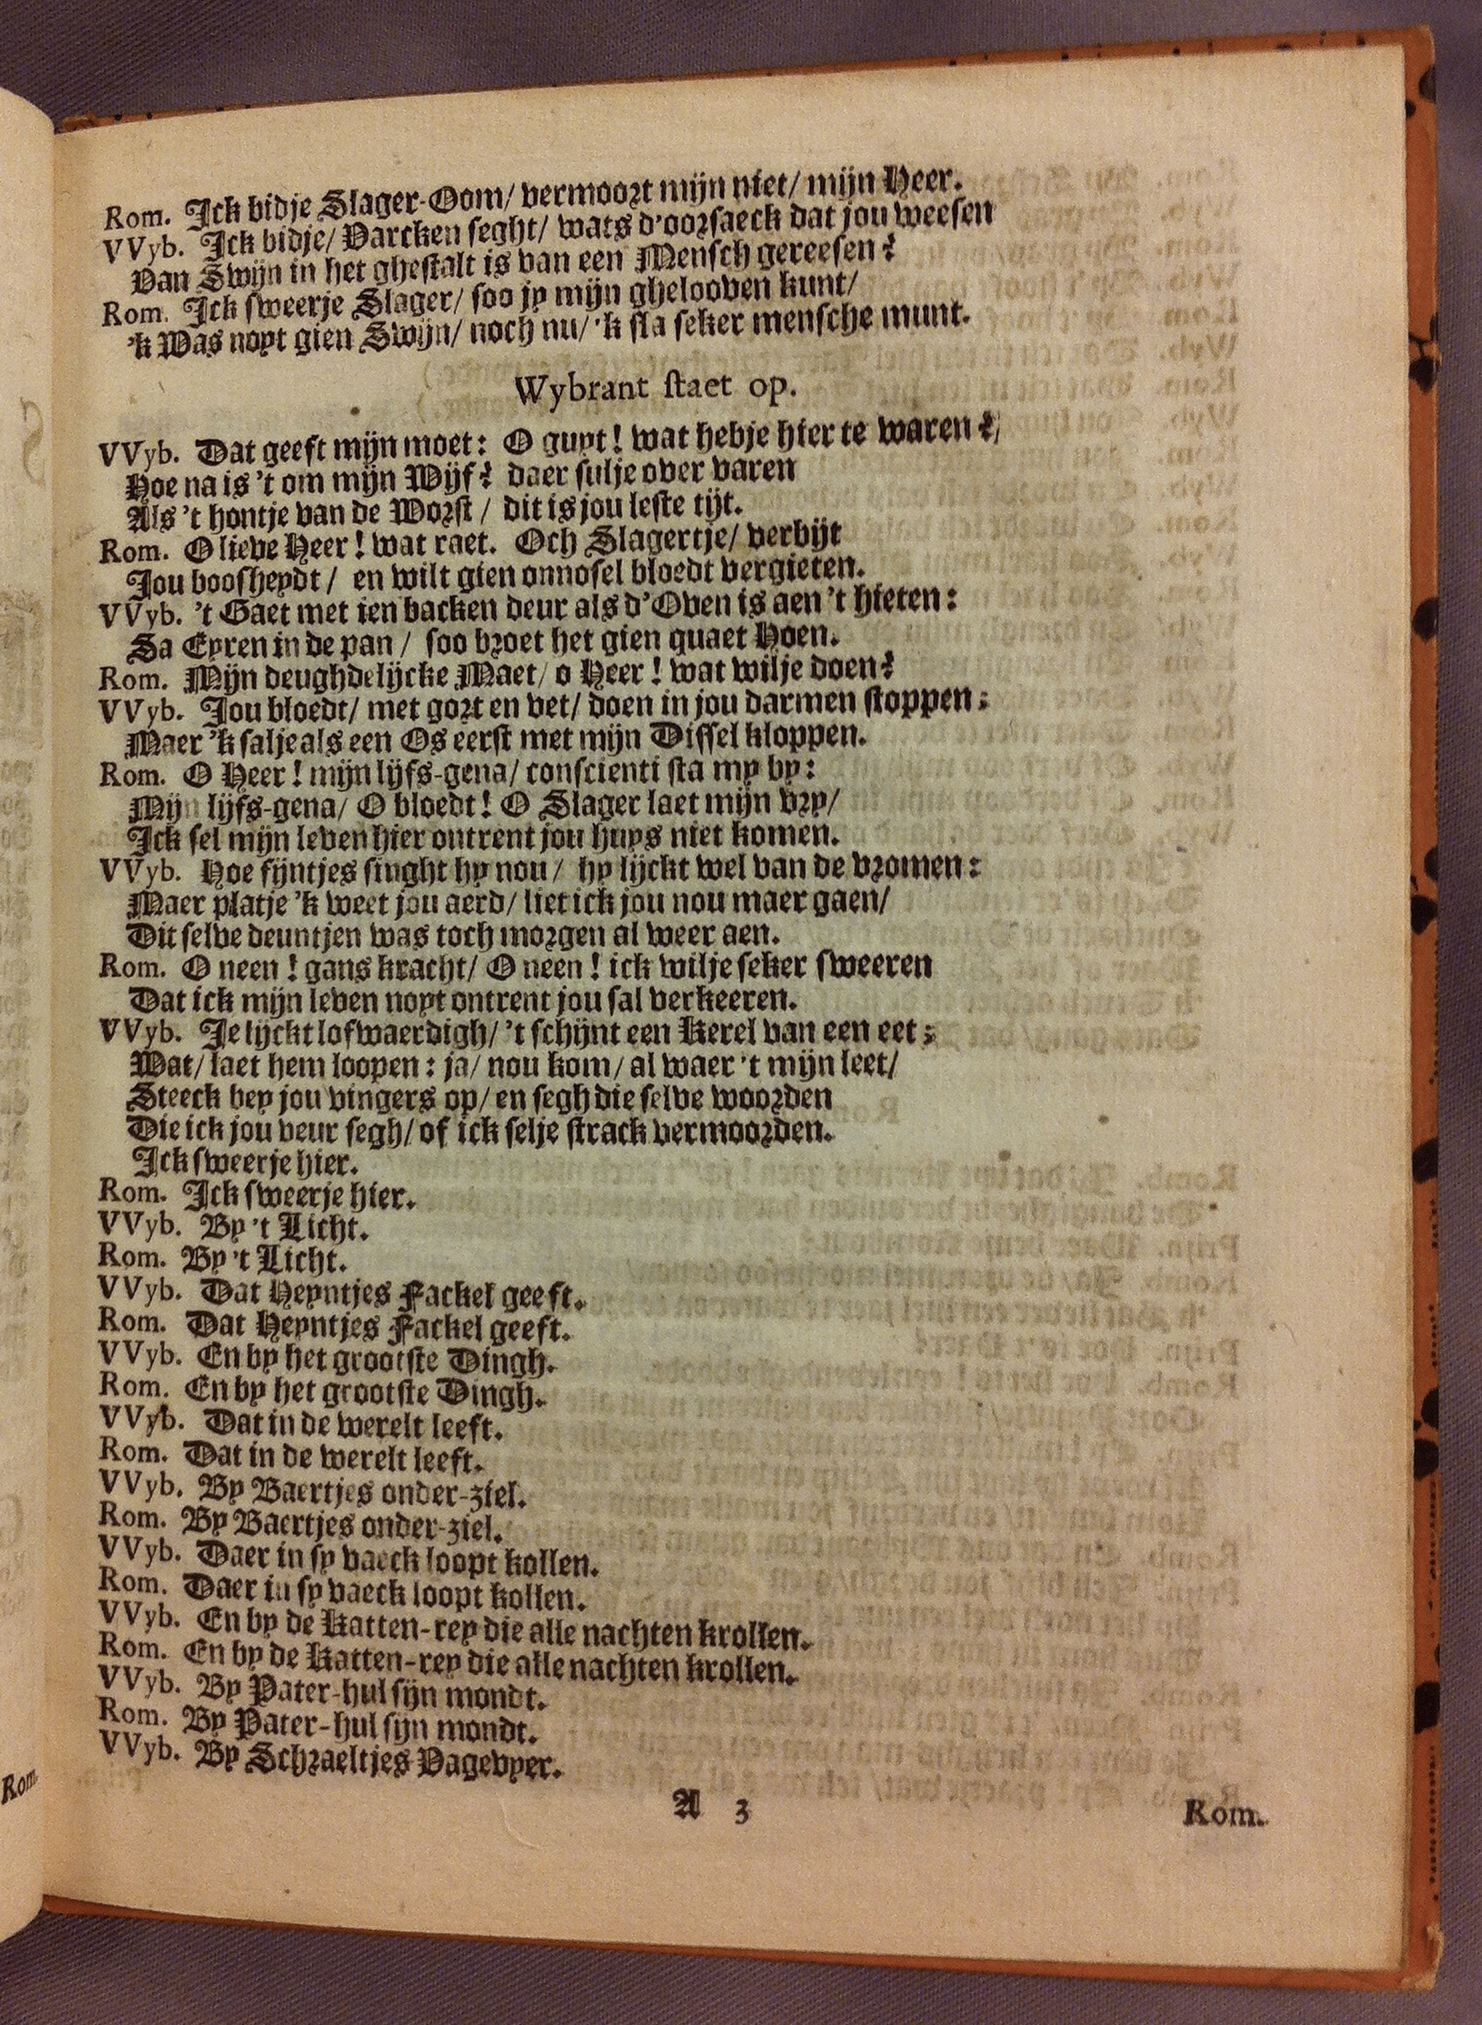 Rom. Ick bidje Slager-Oom/ vermoort mijn niet/ mijn Heer.
VVyb. Ick bidje/ Varcken seght/ wats d'oorsaeck dat jou weesen
Van Swijn in het ghestalt is van een Mensch gereesen?
Rom. Ick sweerje Slager/ soo jy mijn ghelooven kunt/
'k Was noyt gien Swijn/ noch nu/ 'k sla seker mensche munt.
Wybrant staet op.
VVyb. Dat geeft mijn moet: O guyt! wat hebje hier te waren?
Hoe na is 't om mijn Wijf? daer sulje over varen
Als 't hontje van de Worst/ dit is jou leste tijt.
Rom. O lieve Heer! wat raet. Och Slagertje/ verbijt
Jou boosheydt/ en wilt gien onnosel bloedt vergieten.
VVyb. 't Gaet met ien backen deur als d'Oven is aen 't hieten:
Sa Eyren in de pan/ soo broet het gien quaet Hoen.
Rom. Mijn deughdelijcke Maet/ o Heer! wat wilje doen?
VVyb. Jou bloedt/ met gort en vet/ doen in jou darmen stoppen;
Maer 'k salje als een Os eerst met mijn Dissel kloppen.
Rom. O Heer! mijn lijfs-gena/ conscienti sta my by:
Mijn lijfs-gena/ O bloedt! O Slager laet mijn vry/
Ick sel mijn leven hier ontrent jou huys niet komen.
VVyb. Hoe fijntjes singht hy nou/ hy lijckt wel van de vromen:
Maer platje 'k weet jou aerd/ liet ick jou nou maer gaen/
Dit selve deuntjen was toch morgen al weer aen.
Rom. O neen! gans kracht/ O neen! ick wilje seker sweeren
Dat ick mijn leven noyt ontrent jou sal verkeeren.
VVyb. Je lijckt lofwaerdigh/ 't schijnt een Kerel van een eet;
Wat/ laet hem loopen: ja/ nou kom/ al waer 't mijn leet/
Steeck bey jou vingers op/ en segh die selve woorden
Die ick jou veur segh/ of ick selje strack vermoorden.
Ick sweerje hier.
Rom. Ick sweerje hier.
VVyb. By 't Licht.
Rom. By 't Licht.
VVyb. Dat Heyntjes Fackel geeft.
Rom. Dat Heyntjes Fackel geeft.
VVyb. En by het grootste Dingh.
Rom. En by het grootste Dingh.
VVyb. Dat in de werelt leeft.
Rom. Dat in de werelt leeft.
VVyb. By Baertjes onder-ziel.
Rom. By Baertjes onder-ziel.
VVyb. Daer in sy vaeck loopt kollen.
Rom. Daer in sy vaeck loopt kollen.
VVyb. En by de Katten-rey die alle nachten krollen.
Rom. En by de Katten-rey die alle nachten krollen.
VVyb. By Pater-hul sijn mondt.
Rom. By Pater-hul sijn mondt.
VVyb. By Schraeltjes Vagevyer.
A 3 Rom.
Rom.